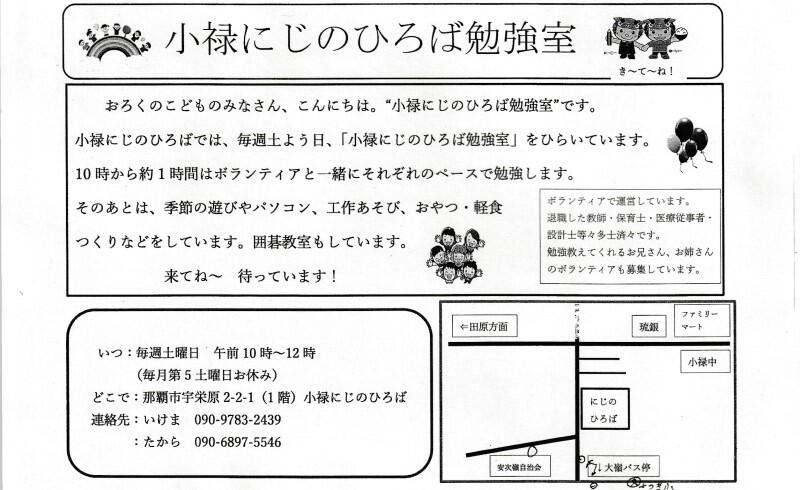 小禄にじのひろば勉強室
き～て～ね！
おろくのこどものみなさん、こんにちは。“小禄にじのひろば勉強室”です。
小禄にじのひろばでは、毎週土よう日、「小禄にじのひろば勉強室」をひらいています。
10時から約1時間はボランティアと一緒にそれぞれのペースで勉強します。
そのあとは、季節の遊びやパソコン、工作あそび、おやつ・軽食
つくりなどをしています。囲碁教室もしています。
来てね～　待っています！
ボランティアで運営しています。
退職した教師・保育士・医療従事者・
設計士等々多士済々です。
勉強教えてくれるお兄さん、お姉さん
のボランティアも募集しています。
いつ：毎週土曜日　午前10時～12時
（毎月第5土曜日お休み）
どこで：那覇市宇栄原2-2-1（1階）小禄にじのひろば
連絡先：いけま　090-9783-2439
：たから　090-6897-5546
⇐田原方面
琉銀
ファミリー
マート
小禄中
にじの
ひろば
安次嶺自治会
↓大嶺バス停